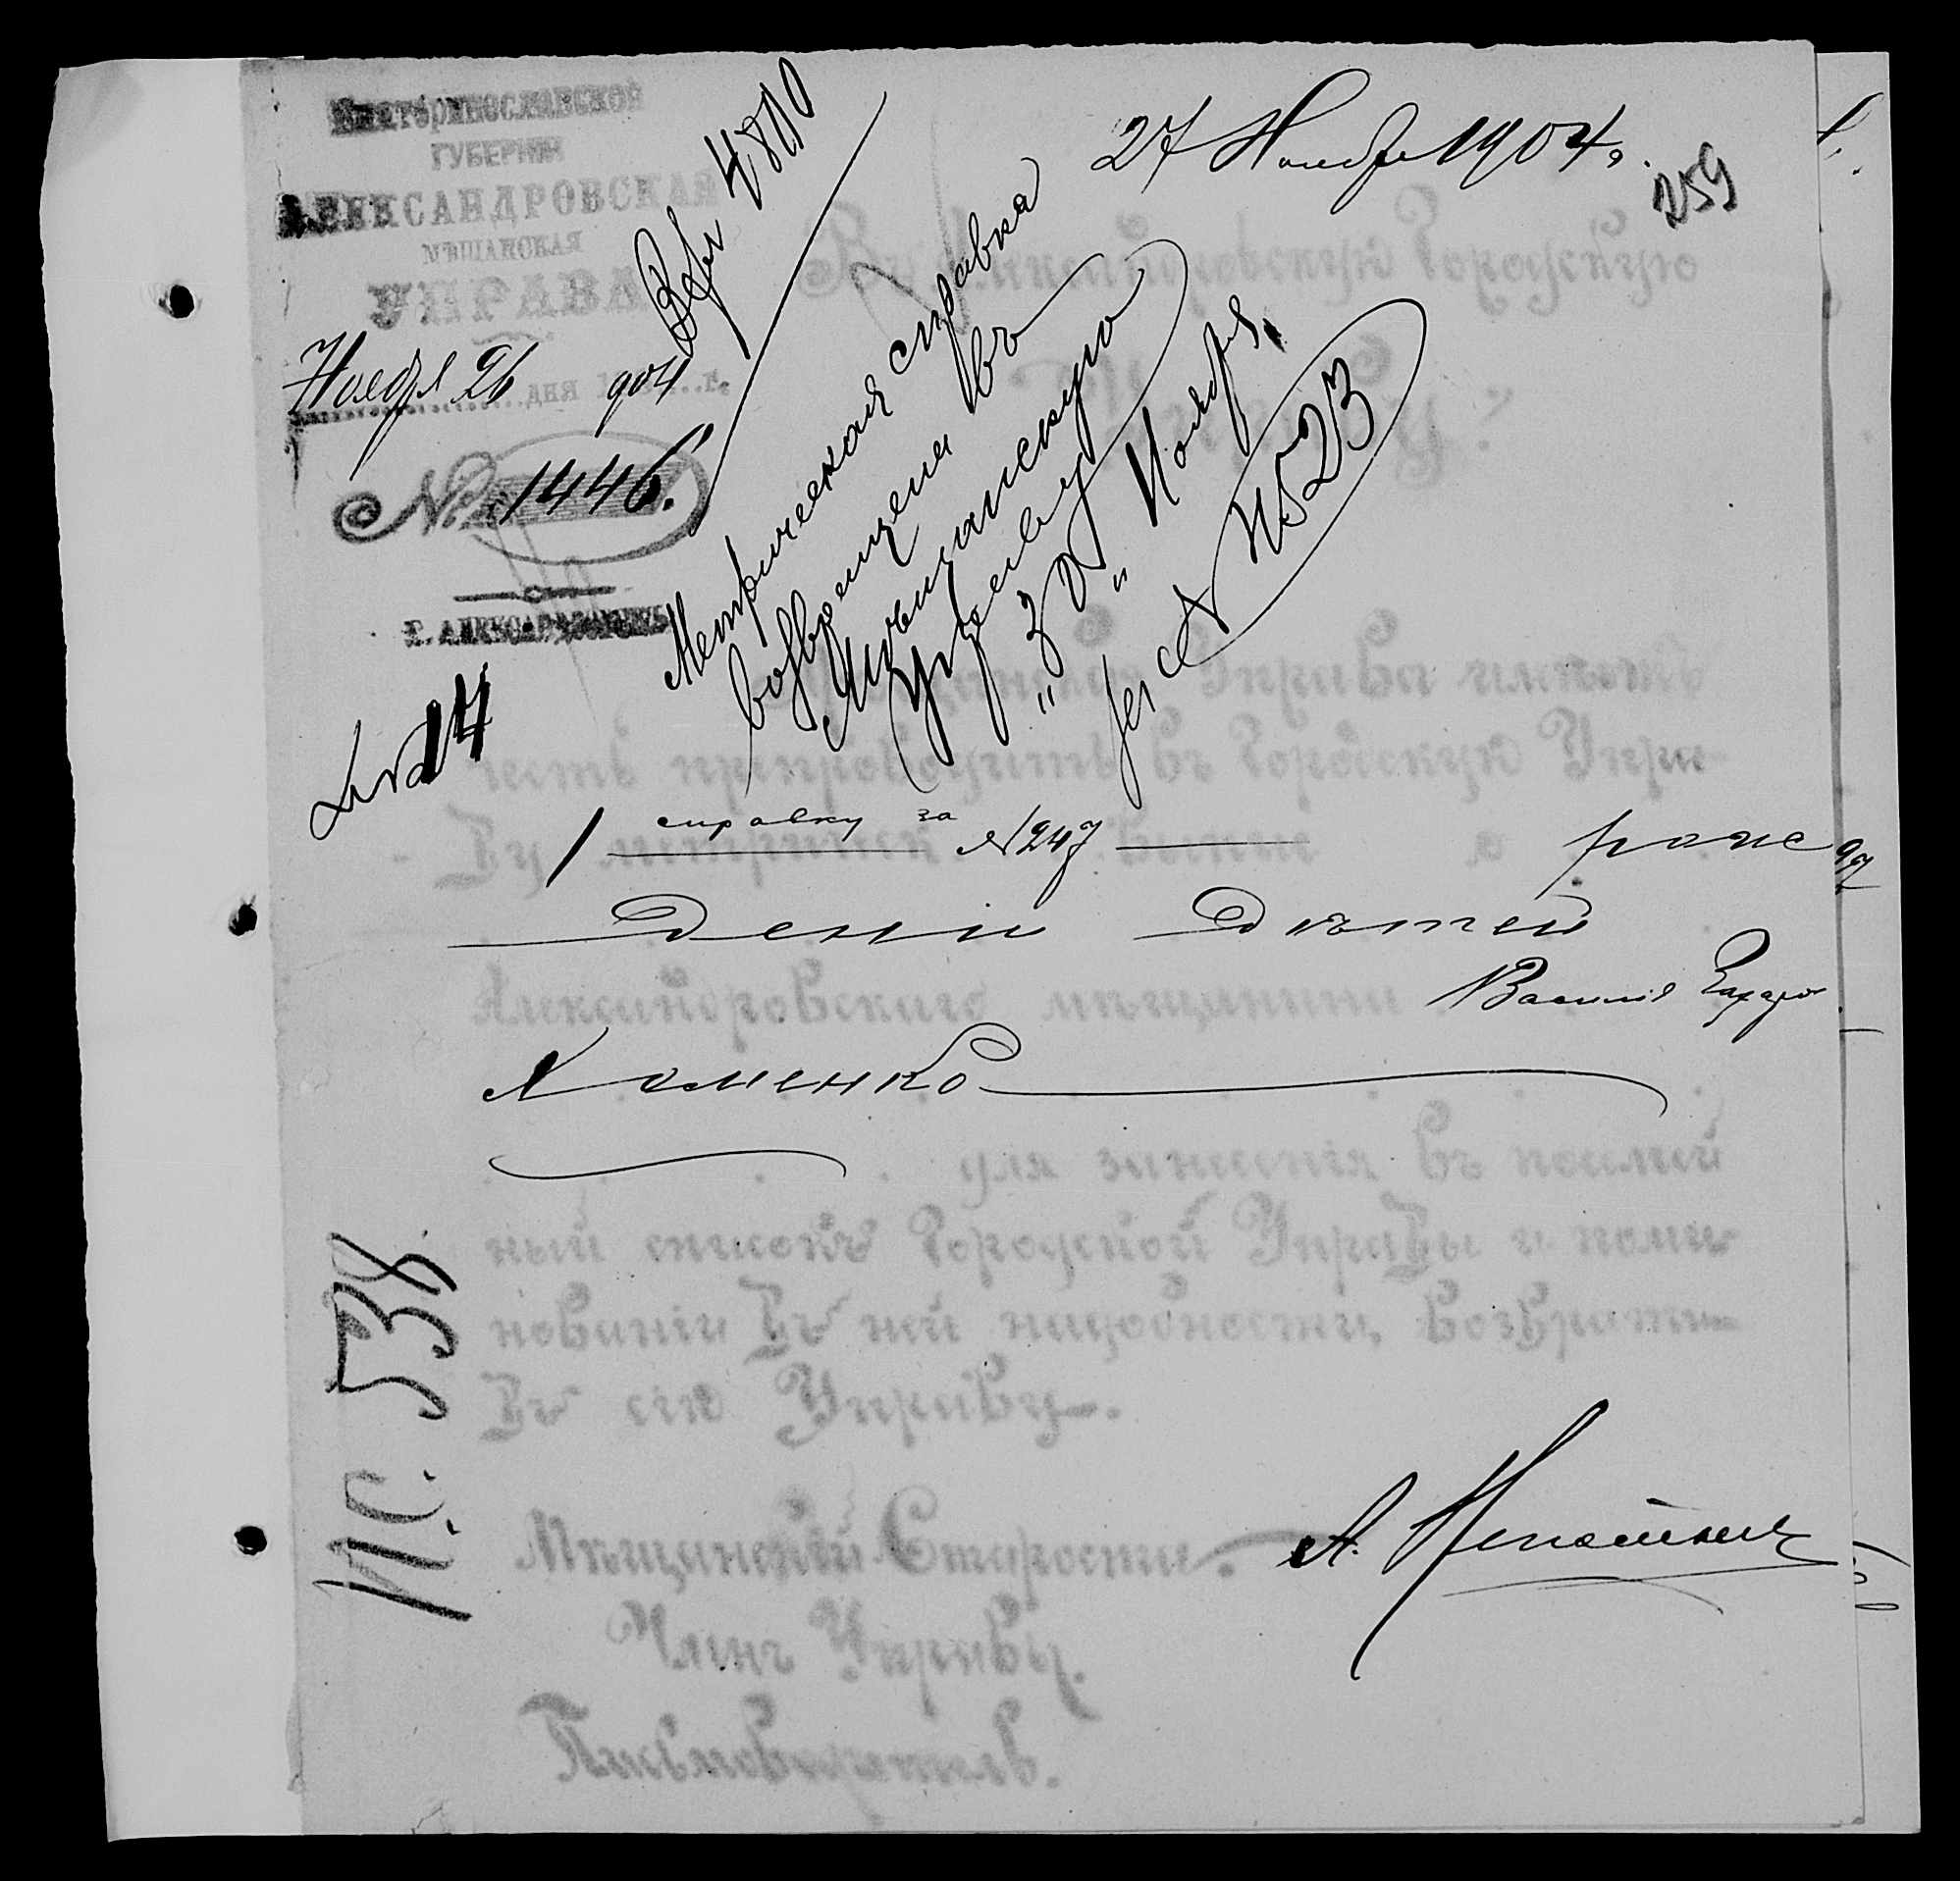 Екатеринославской
ГУБЕРНІИ
АЛЕКСАНДРОВСКАЯ
МѢЩАНСКАЯ
УПРАВА
Ноября 26 дня 1904 г.
№ 1446.
Г. АЛЕКСАНДРОВСКЪ
27 Ноября 1904 г.
259
Метрическая справка
возвращена въ
Мѣщанскую
Управу
"30" Ноября
за № 4523
Въ Александровскую Городскую
Управу.
Мѣщанская Управа имѣетъ
честь препроводить въ Городскую Упра-
ву 1 справку за № 247 о рож
деніи дѣтей
Александровскаго мѣщанина Василія Захаро
Хоменко
для занесенія въ посемей
ный списокъ Городской Управы и по ми-
нованіи въ ней надобности, возврати
въ сію Управу.
И.С. 538
Мѣщанскій Староста
Членъ Управы.
Письмоводитель.